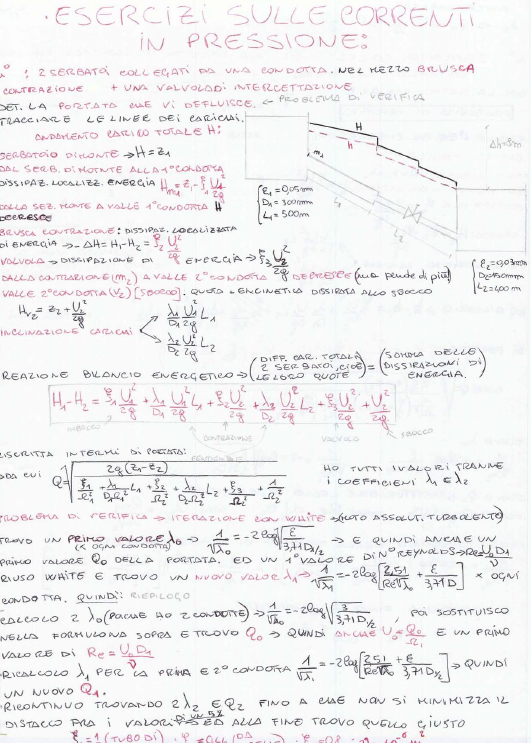 ·ESERCIZI SULLE CORRENTI
IN PRESSIONE:
1°; 2 SERBATOI COLLEGATI DA UNA CONDOTTA. NEL MEZZO BRUSCA
CONTRAZIONE + UNA VALVOLA DI INTERCETTAZIONE
DET. LA PORTATA CHE VI DEFLUISCE. ← PROBLEMA DI VERIFICA
TRACCIARE LE LINEE DEI CARICHI.
ANDAMENTO CARICO TOTALE H:
SERBATOIO DI MONTE → H = Z1
DAL SERB. DI MONTE ALLA 1° CONDOTTA
DISSIPAZ. LOCALIZZ. ENERGIA Hm1 = Z1 - ξ1 U1²/2g
DALLA SEZ. MONTE A VALLE 1° CONDOTTA H
DECRESCE
H
h
Δh=8m
m1
L1
L2
ε1 = 0,05mm
D1 = 300mm
L1 = 500m
ε2 = 0,03mm
D2 = 150mm
L2 = 400m
BRUSCA CONTRAZIONE: DISSIPAZ. LOCALIZZATA
DI ENERGIA → -ΔH = H1-H2 = ξ2 U2²/2g
VALVOLA → DISSIPAZIONE DI ENERGIA → ξ3 U2²/2g
DALLA CONTRAZIONE (m2) A VALLE 2° CONDOTTA DECRESCE (ma pende di più)
VALLE 2° CONDOTTA (V2) [SBOCCO]: QUOTA + EN. CINETICA DISSIPATA ALLO SBOCCO
Hv2 = Z2 + U2²/2g
INCLINAZIONE CARICHI
λ1/D1 U1²/2g L1
λ2/D2 U2²/2g L2
REAZIONE BILANCIO ENERGETICO → (DIFF. CAR. TOTALI 2 SERBATOI, CIOÈ LE LORO QUOTE) = (SOMMA DELLE DISSIPAZIONI DI ENERGIA.)
H1-H2 = ξ1 U1²/2g + λ1/D1 U1²/2g L1 + ξ2 U2²/2g + λ2/D2 U2²/2g L2 + ξ3 U2²/2g + U2²/2g
IMBOCCO
CONTRAZIONE
VALVOLA
SBOCCO
RISCRITTA IN TERMINI DI PORTATA:
DA CUI Q = √ 2g(Z1-Z2) / ξ1/Ω1² + λ1/D1Ω1² L1 + ξ2/Ω2² + λ2/D2Ω2² L2 + ξ3/Ω2² + 1/Ω2²
HO TUTTI I VALORI TRANNE
I COEFFICIENTI λ1 E λ2
PROBLEMA DI VERIFICA → ITERAZIONE CON WHITE → (MOTO ASSOLUT. TURBOLENTO)
TROVO UN PRIMO VALORE λ0 → 1/√λ0 = -2log[ε/3,71D1/2] → E QUINDI ANCHE UN
(X OGNI CONDOTTA)
PRIMO VALORE Q0 DELLA PORTATA. ED UN 1° VALORE DI N° REYNOLDS → Re = U0D1/ν
RIUSO WHITE E TROVO UN NUOVO VALORE λ1 → 1/√λ1 = -2log[2,51/Re√λ0 + ε/3,71D] X OGNI
CONDOTTA. QUINDI: RIEPILOGO
CALCOLO 2 λ0 (PERCHÉ HO 2 CONDOTTE) → 1/√λ0 = -2log[ε/3,71D1/2], POI SOSTITUISCO
NELLA FORMULONA SOPRA E TROVO Q0 → QUINDI ANCHE U0 = Q0/Ω1 E UN PRIMO
VALORE DI Re = U0D1/ν
RICALCOLO λ1 PER LA PRIMA E 2° CONDOTTA 1/√λ1 = -2log[2,51/Re√λ0 + ε/3,71D1/2] → QUINDI
UN NUOVO Q1.
·RICONTINUO TROVANDO 2 λ2 E Q2 FINO A CHE NON SI MINIMIZZA IL
DISTACCO FRA I VALORI → ED ALLA FINE TROVO QUELLO GIUSTO
DI UN 5%